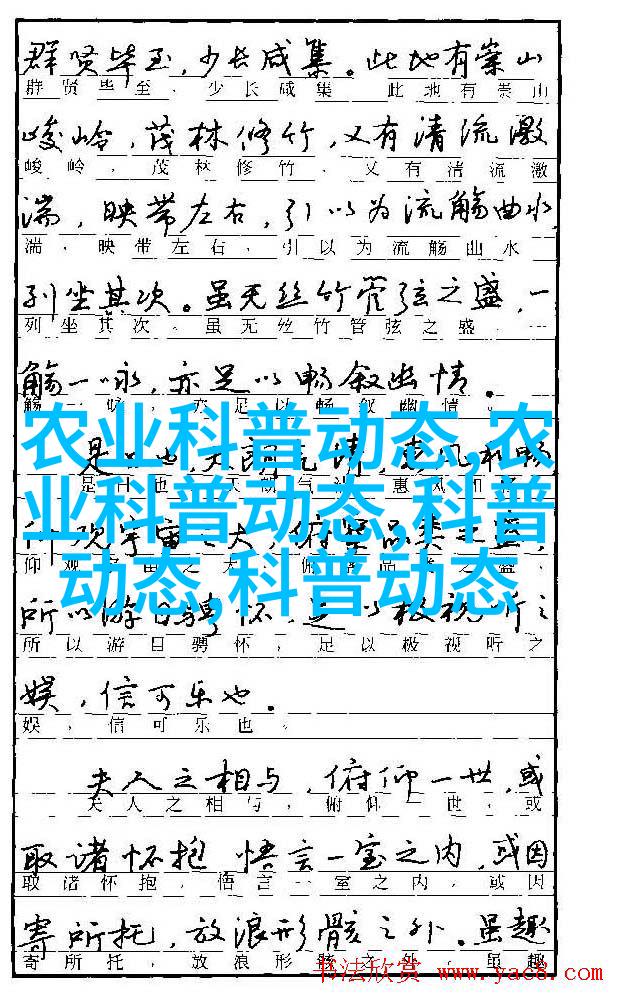 群贤毕至,少长咸集。此地有崇山
群贤毕至,少长咸集 此地有崇山
峻岭,茂林修竹,又有清流激
峻岭,茂林修竹,又有清流激
湍,映带左右,引以为流觞曲水,
湍,映带左右,引以为流觞曲水
列坐其次。虽无丝竹管弦之盛,一
列坐其次。虽无丝竹管弦之盛,一
觞一咏,亦足以畅叙幽情。
觞一咏,亦足以畅叙幽情。
农业科普动态,农
业科普动态,科普
动态,科普动态
仰观宇宙之大,俯
所以游目骋怀,足以极视听之
所以游目骋怀,足以极视听之
娱,信可乐也。
娱,信可乐也。
夫人之相与,俯仰一世,或
夫人之相与,俯仰一世,或
取诸怀抱 悟言一室之内,或因
取诸怀抱,悟言一室之内,或因
寄所托,放浪形骸之外。虽趣
寄所托,放浪形骸之外。虽趣
书法欣赏 www.yac8.com